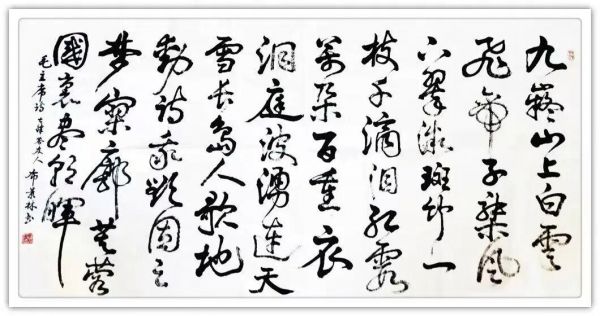 九嶷山上白雲
飛帝子乘風
下翠微斑竹一
枝千滴泪红霞
萬朵百重衣
洞庭波湧連天
雪长島人歌地
動诗我欲因之
梦寥廓芙蓉
國裏盡朝暉
毛主席诗